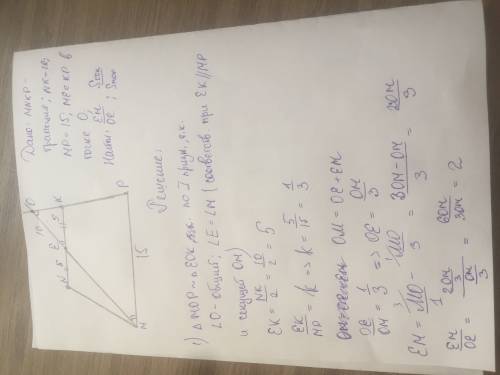 Дано: MNKP -
трапеция; NK=10;
MP = 15, ME∩KP в
точке O,
Найти: EM/OE ; S
N 5 E 5 K O
10
M 15 P
Решение:
1) △MOP ~ △EOK по I призн., т.к.
∠O - общий; ∠E = ∠M (соответств при EK//MP
и секущей OM)
EK = NK/2 = 10/2 = 5
EK/MP = K => K = 5/15 = 1/3
OM = OE + EM
OE/OM = 1/3 => OE = OM/3
EM = MO - MO/3 = (3OM - OM)/3 = 2OM/3
EM/OE = (2OM/3)/(OM/3) = 6OM/3OM = 2